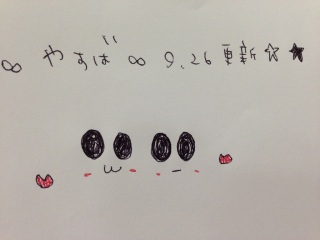 ∞ やすば" ∞ 9.26 更新☆★